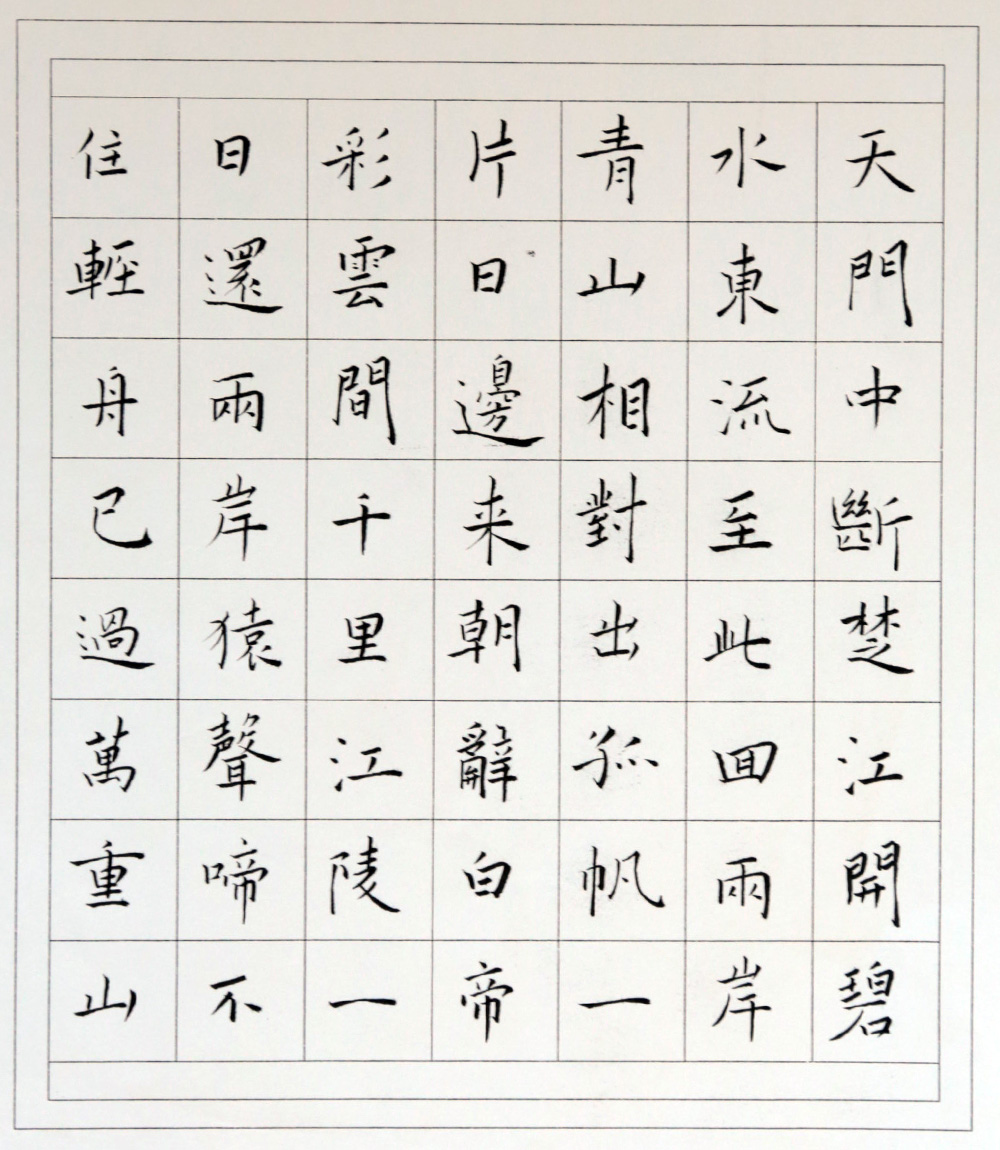 天門中斷楚江開碧
水東流至此回兩岸
青山相對出孤帆一
片日邊来朝辭白帝
彩雲間千里江陵一
日還兩岸猿聲啼不
住輕舟已過萬重山